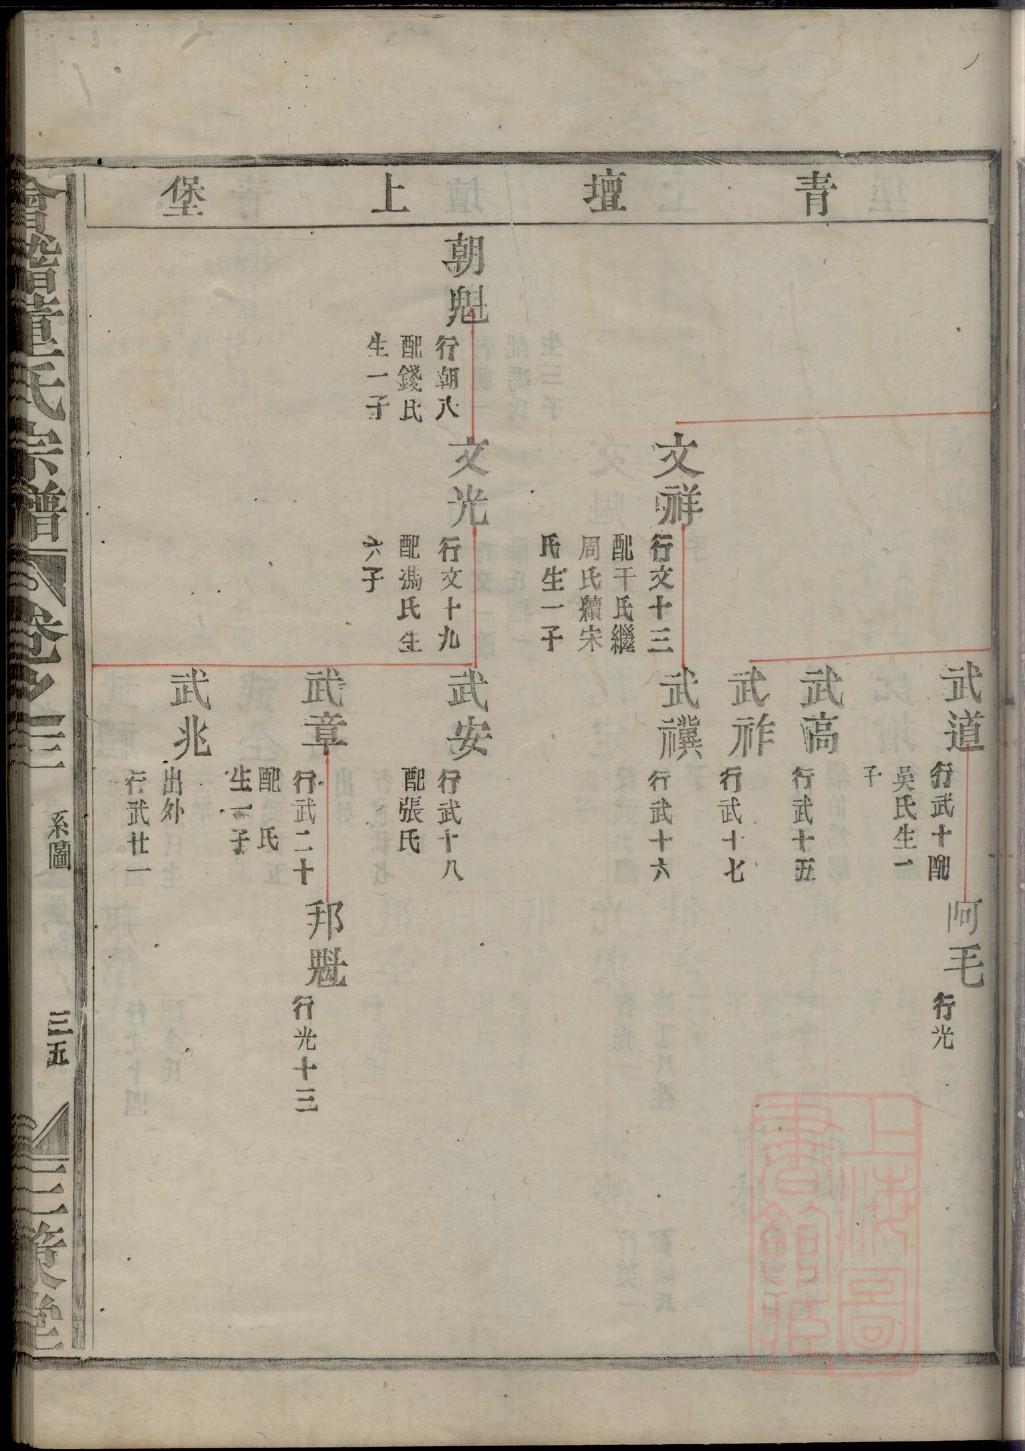 青壇上堡
武道
行武十配
吳氏生一
子
阿毛
行光
武高
行武十五
武祚
行武十七
文祥
行文十三
配干氏繼
周氏續宋
氏生一子
武禩
行武十六
朝魁
行朝八
配錢氏
生一子
文光
行文十九
配馮氏生
六子
武安
行武十八
配張氏
武章
行武二十
配 氏
生一子
邦魁
行光十三
武兆
出外
行武廿一
會稽董氏宗譜
卷之三
系圖
三五
三策堂
上海圖
書館藏